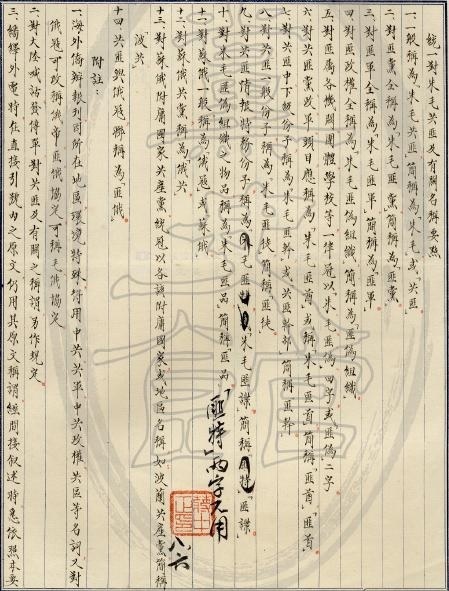 統一對朱毛共匪及有關名稱要點
一、一般稱為「朱毛共匪」簡稱為「朱毛」或「共匪」
二、對匪黨全稱為「朱毛匪黨」簡稱為「匪黨」
三、對匪軍全稱為「朱毛匪軍」簡稱為「匪軍」
四、對匪政權全稱為「朱毛匪偽組織」簡稱為「匪偽組織」
五、對匪屬各機關團體學校等一律冠以「朱毛匪偽」四字或「匪偽」二字
六、對共匪黨政軍頭目應稱為「朱毛匪酋」或稱「朱毛匪首」簡稱「匪酋」「匪首」
七、對共匪中下級份子稱為「朱毛匪幹」或「共匪幹部」簡稱「匪幹」
八、對共匪一般份子稱為「朱毛匪徒」簡稱「匪徒」
九、對共匪情報特務份子稱為「朱毛匪 」「朱毛匪諜」簡稱「匪特」「匪諜」
「匪特」兩字不用
八、六
十、對朱毛匪偽組織之物品稱為「朱毛匪品」簡稱「匪品」
十一、對蘇俄一般稱為「俄寇」或「蘇俄」
十二、對蘇俄共黨稱為「俄共」
十三、對蘇俄附庸國家共產黨統冠以各該附庸國家或地區名稱如波蘭共產黨簡稱
「波共」
十四、共匪與俄寇聯稱為「匪俄」
附註：
一、海外僑辦報刊因所在地區環境特殊得用中共共軍中共政權共區等名詞又對
俄寇可改稱俄帝「匪俄協定」可稱「毛俄協定」
二、對大陸喊話發傳單對共匪及有關之稱謂另作規定
三、繙繹外電時在直接引號內之原文仍用其原文稱謂經間接叙述時悉依照本要